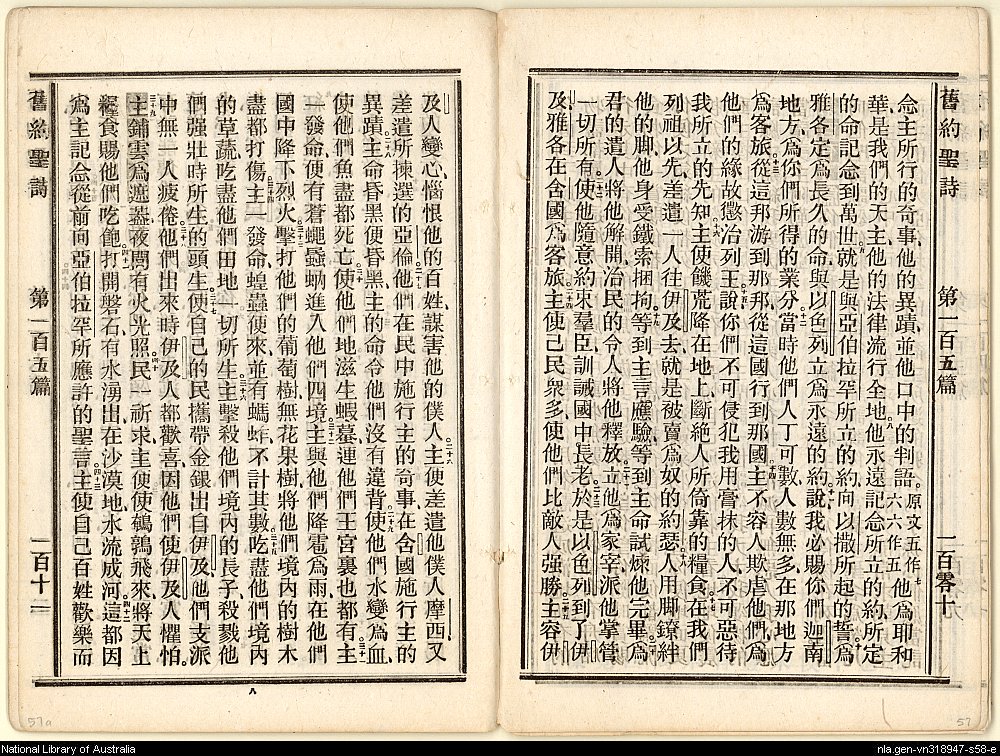 舊約聖詩　第一百五篇　一百零十
念主所行的奇事、他的異蹟、並他口中的判語。原文五作七六六作五他爲耶和
華是我們的天主、他的法律流行全地。八他永遠記念所立的約、所定
的命記念到萬世。九就是與亞伯拉罕所立的約、向以撒所起的誓。十爲
雅各定爲長久的命、與以色列立爲永遠的約。十一說我必賜你們迦南
地方、爲你們所得的業分。十二當時他們人丁可數、人數無多、在那地方
爲客旅。十三從這那游到那邦、從這國行到那國。十四主不容人欺虐他們、爲
他們的緣故懲治列王。十五說你們不可侵犯我用膏抹的人、不可惡待
我所立的先知。十六主使饑荒降在地上、斷絕人所倚靠的糧食。十七在我們
列祖以先、差遣一人往伊及去、就是被賣爲奴的約瑟。十八人用脚鐐絆
他的脚、他身受鐵索捆拘。十九等到主言應驗、等到主命試煉他完畢。二十爲
君的遣人將他解開、治民的令人將他釋放。二十一立他爲家宰、派他掌管
一切所有。二十二使他隨意約束羣臣、訓誡國中長老。二十三於是以色列到了伊
及、雅各在含國爲客旅。二十四主使己民衆多、使他們比敵人强勝。二十五主容伊
及人變心、惱恨他的百姓、謀害他的僕人。二十六主便差遣他僕人摩西、又
差遣所揀選的亞倫。二十七他們在民中施行主的奇事、在含國施行主的
異蹟。二十八主命昏黑便昏黑、主的命令他們沒有違背。二十九使他們水變爲血、
使他們魚盡都死亡。三十使他們地滋生蝦蟇、連他們王宮裏也都有。三十一主
一發命、便有蒼蠅蟁蚋進入他們四境。三十二主與他們降雹爲雨、在他們
國中降下烈火。三十三擊打他們的葡萄樹、無花果樹、將他們境內的樹木
盡都打傷。三十四主一發命、蝗蟲便來、並有螞蚱不計其數。三十五吃盡他們境內
的草蔬、吃盡他們田地一切所生。三十六主擊殺他們境內的長子、殺戮他
們强壯時所生的頭生。三十七使自己的民攜帶金銀出自伊及、他們支派
中無一人疲倦。三十八他們出來時、伊及人都歡喜、因他們使伊及人懼怕。
三十九主鋪雲爲遮蓋、夜間有火光照。四十民一祈求、主便使鵪鶉飛來、將天上
糧食賜他們吃飽。四十一打開磐石、有水湧出、在沙漠地水流成河。四十二這都因
爲主記念從前向亞伯拉罕所應許的聖言。四十三主使自己百姓歡樂而
舊約聖詩　第一百五篇　一百十一
八
57a
57
National Library of Australia
nla.gen-vn318947-s58-e